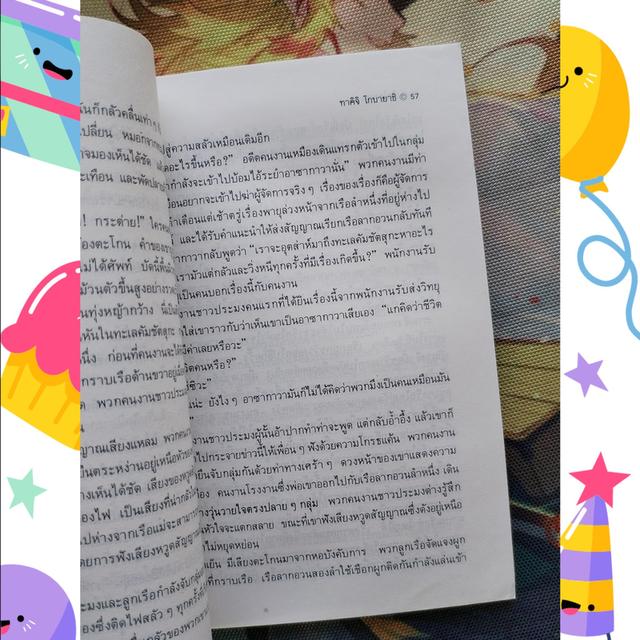 นั้นก็กลัวคลื่นเท่า ๆ กั
เปลี่ยน หมอกจาก
จมองเห็นได้ชัด
ะเทือน และพัดปลาย
! กระต่าย!" ใครคน
องตะโกน
ม่ได้ศัพท์ บัดนี้
ม้วนตัวขึ้นสูงอย่างรวด
นทุ่งหญ้ากว้าง
หันในทะเลคัมชัตสุกะ
นึ่ง ก่อนที่คนงานจะได้
กราบเรือด้านขวาอยู่
ด พวกคนงานชาวประม
ญาณเสียงแหลม พวก
ป็นตระหง่านอยู่เหนือหัว
างเห็นได้ชัด เสียงของ
องไฟ เป็นเสียงที่ฝ่า
ปห่างจากเรือแม่จะสามา
ดยการฟังเสียงหวูดสัญญ
ะมงและลูกเรือกำลังจับกลุ่ม
องซึ่งติดไฟสลัว ๆ ทุกครั้งที่
ทาคิจิ โกบายาชิ © 57
สู่ความสลัวเหมือนเดิมอีก
อะไรขึ้นหรือ?" อดีตคนงานเหมืองเดินแทรกตัวเข้าไปในกลุ่ม
กำลังจะเข้าไปบ้อมไอ้ระยำอาซากาวานั่น" พวกคนงานมีท่า
อนอยากจะเข้าไปฆ่าผู้จัดการจริง ๆ เรื่องของเรื่องก็คือผู้จัดการ
เตือนแต่เช้าตรู่เรื่องพายุล่วงหน้าจากเรือลำหนึ่งที่อยู่ห่างไป
และได้รับคำแนะนำให้ส่งสัญญาณเรียกเรือลากอวนกลับทันที
กาวากลับพูดว่า "เราจะอุตส่าห์มาถึงทะเลคัมชัตสุกะหาอะไร
รามัวแต่กลัวและวิ่งหนีทุกครั้งที่มีเรื่องเกิดขึ้น?" พนักงานรับ
เป็นคนบอกเรื่องนี้กับคนงาน
งานชาวประมงคนแรกที่ได้ยินเรื่องนี้จากพนักงานรับส่งวิทยุ
ใส่เขาราวกับว่าเห็นเขาเป็นอาซากาวาเสียเอง "แกคิดว่าชีวิต
ค่าเลยหรือวะ"
ตคนหรือ?"
ซิวะ"
น่ะ ยังไง ๆ อาซากาวามันก็ไม่ได้คิดว่าพวกมึงเป็นคนเหมือนมัน
งานชาวประมงผู้นั้นอ้าปากทำท่าจะพูด แต่กลับอ้ำอึ้ง แล้วเขาก็
ไปกระจายข่าวนี้ให้เพื่อน ๆ ฟังด้วยความโกรธแค้น พวกคนงาน
ยืนจับกลุ่มกันด้วยท่าทางเศร้า ๆ ดวงหน้าของเขาแสดงความ
คนงานโรงงานซึ่งพ่อเขาออกไปกับเรือลากอวนลำหนึ่ง เดิน
งวุ่นวายใจตรงปลาย ๆ กลุ่ม พวกคนงานชาวประมงต่างรู้สึก
หัวใจจะแตกสลาย ขณะที่เขาฟังเสียงหวูดสัญญาณซึ่งดังอยู่เหนือ
ไม่หยุดหย่อน
ย็น มีเสียงตะโกนมาจากหอบังคับการ พวกลูกเรือจัดแจงผูก
ที่กราบเรือ เรือลากอวนสองลำใช้เชือกผูกติดกันกำลังแล่นเข้า